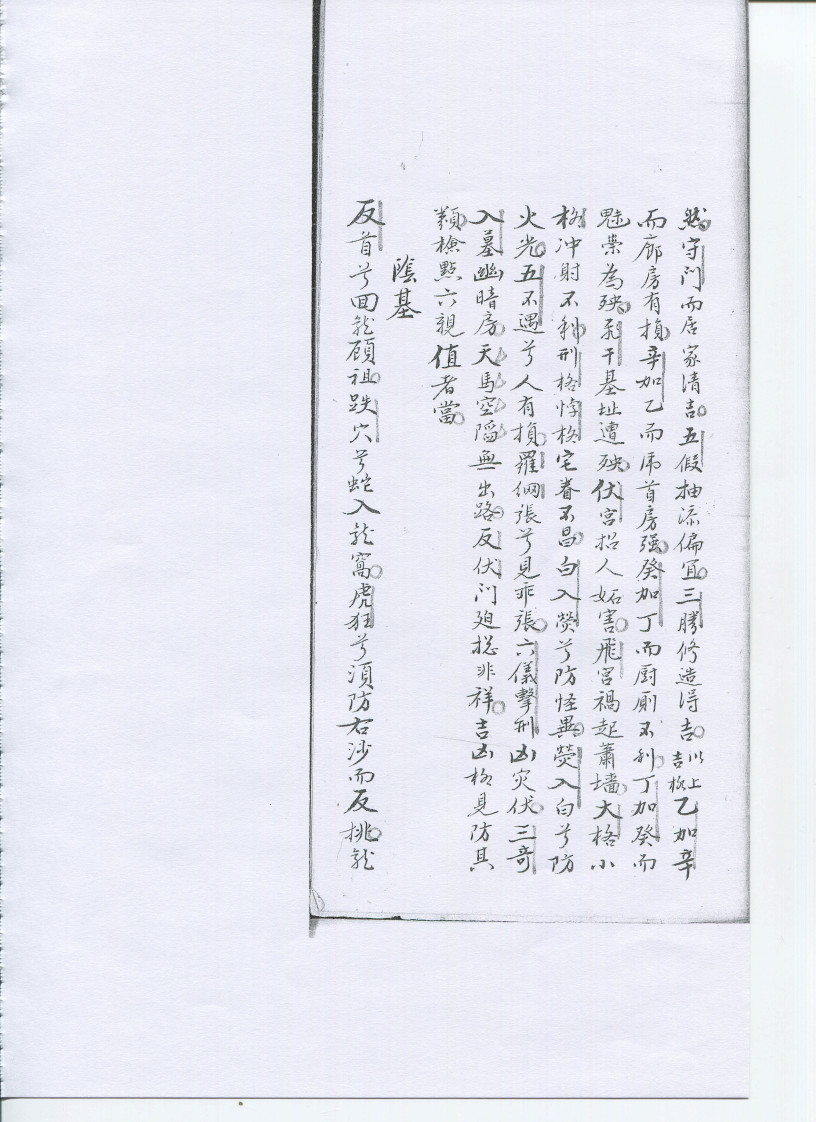 然守门而居家清吉五假抽添偏宜三勝修造得吉以上吉格乙加辛
而廊房有損辛加乙而虎首房强癸加丁而厨厠不利丁加癸而
魅祟為殃刑干基址遭殃伏宫招人妬害飛宫禍起蕭墻大格小
格冲射不利刑格悖格宅眷不昌白入熒兮防怪異熒入白兮防
火光五不遇兮人有損羅網張兮見乖張六儀擊刑凶灾伏三奇
入墓幽暗房天馬空陷無出路反伏门廹捴非祥吉凶格見防其
類檢點六親值者當
陰基
反首兮回龍顧祖跌穴兮蛇入龍窩虎狂兮須防右沙而反桃龍